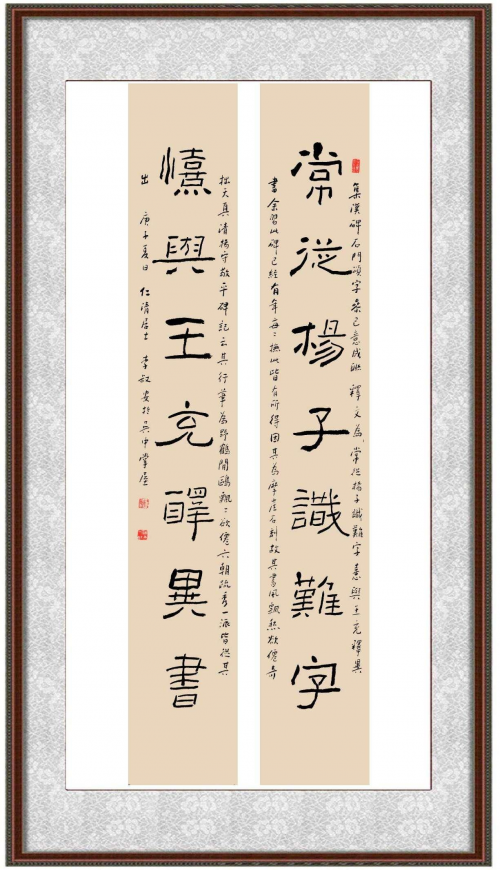 集漢碑石門頌字參己意成聯 釋文為 常從楊子識難字 憙與王充釋異
常從楊子識難字
書 余習此碑已經有年 每々撫此皆有所得 因其為摩崖石刻 故其書風飄然欲僊 奇
拙天真 清楊守敬平碑記云 其行筆為野鶴閒鷗 飄々欲僊 六朝疏秀一派皆從其
憙與王充醳異書
出 庚子夏日 仁清居士 李叙安於吳中